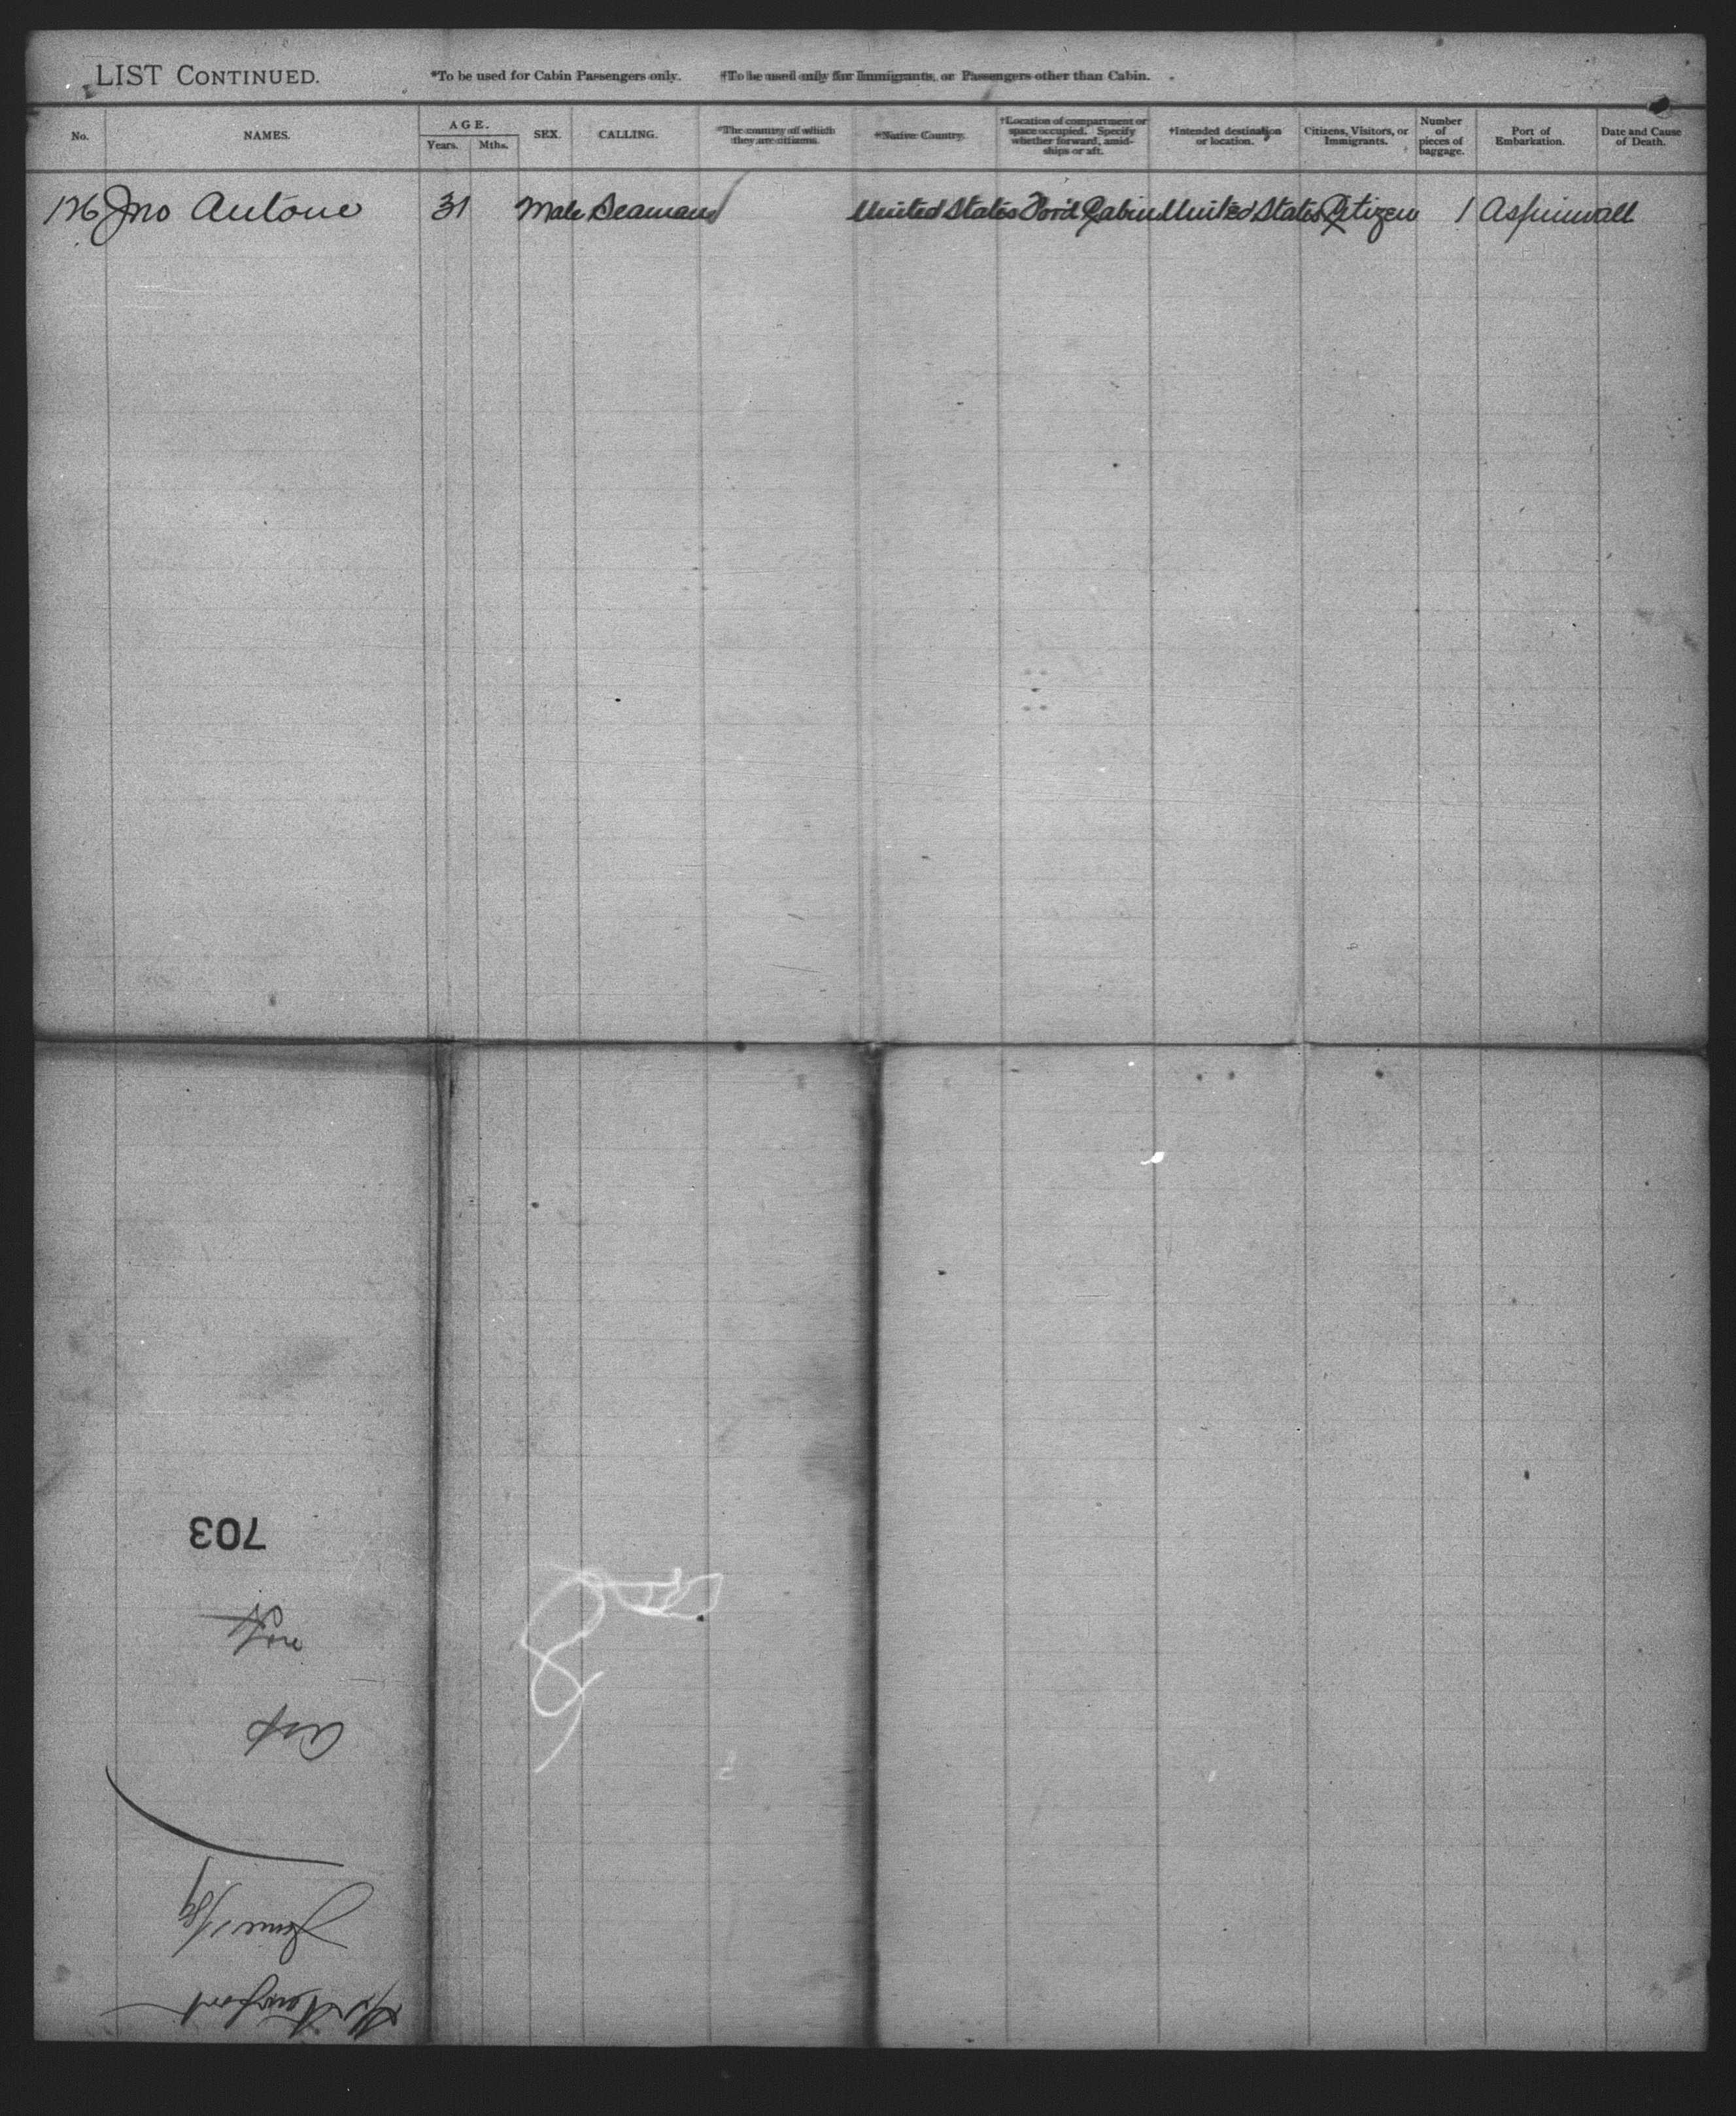 LIST CONTINUED. *To be used for Cabin Passengers only. †To be used only for Immigrants, or Passengers other than Cabin.
No. NAMES. AGE. Years. Mths. SEX. CALLING. *The country of which they are citizens. *Native Country. †Location of compartment or space occupied. Specify whether forward, amidships or aft. †Intended destination or location. Citizens, Visitors, or Immigrants. Number of pieces of baggage. Port of Embarkation. Date and Cause of Death.
126 Jno Antone 31 Male Seaman United States For'd Cabin United States Citizen 1 Aspinwall
703
Asp
June 1/89
Str Newport